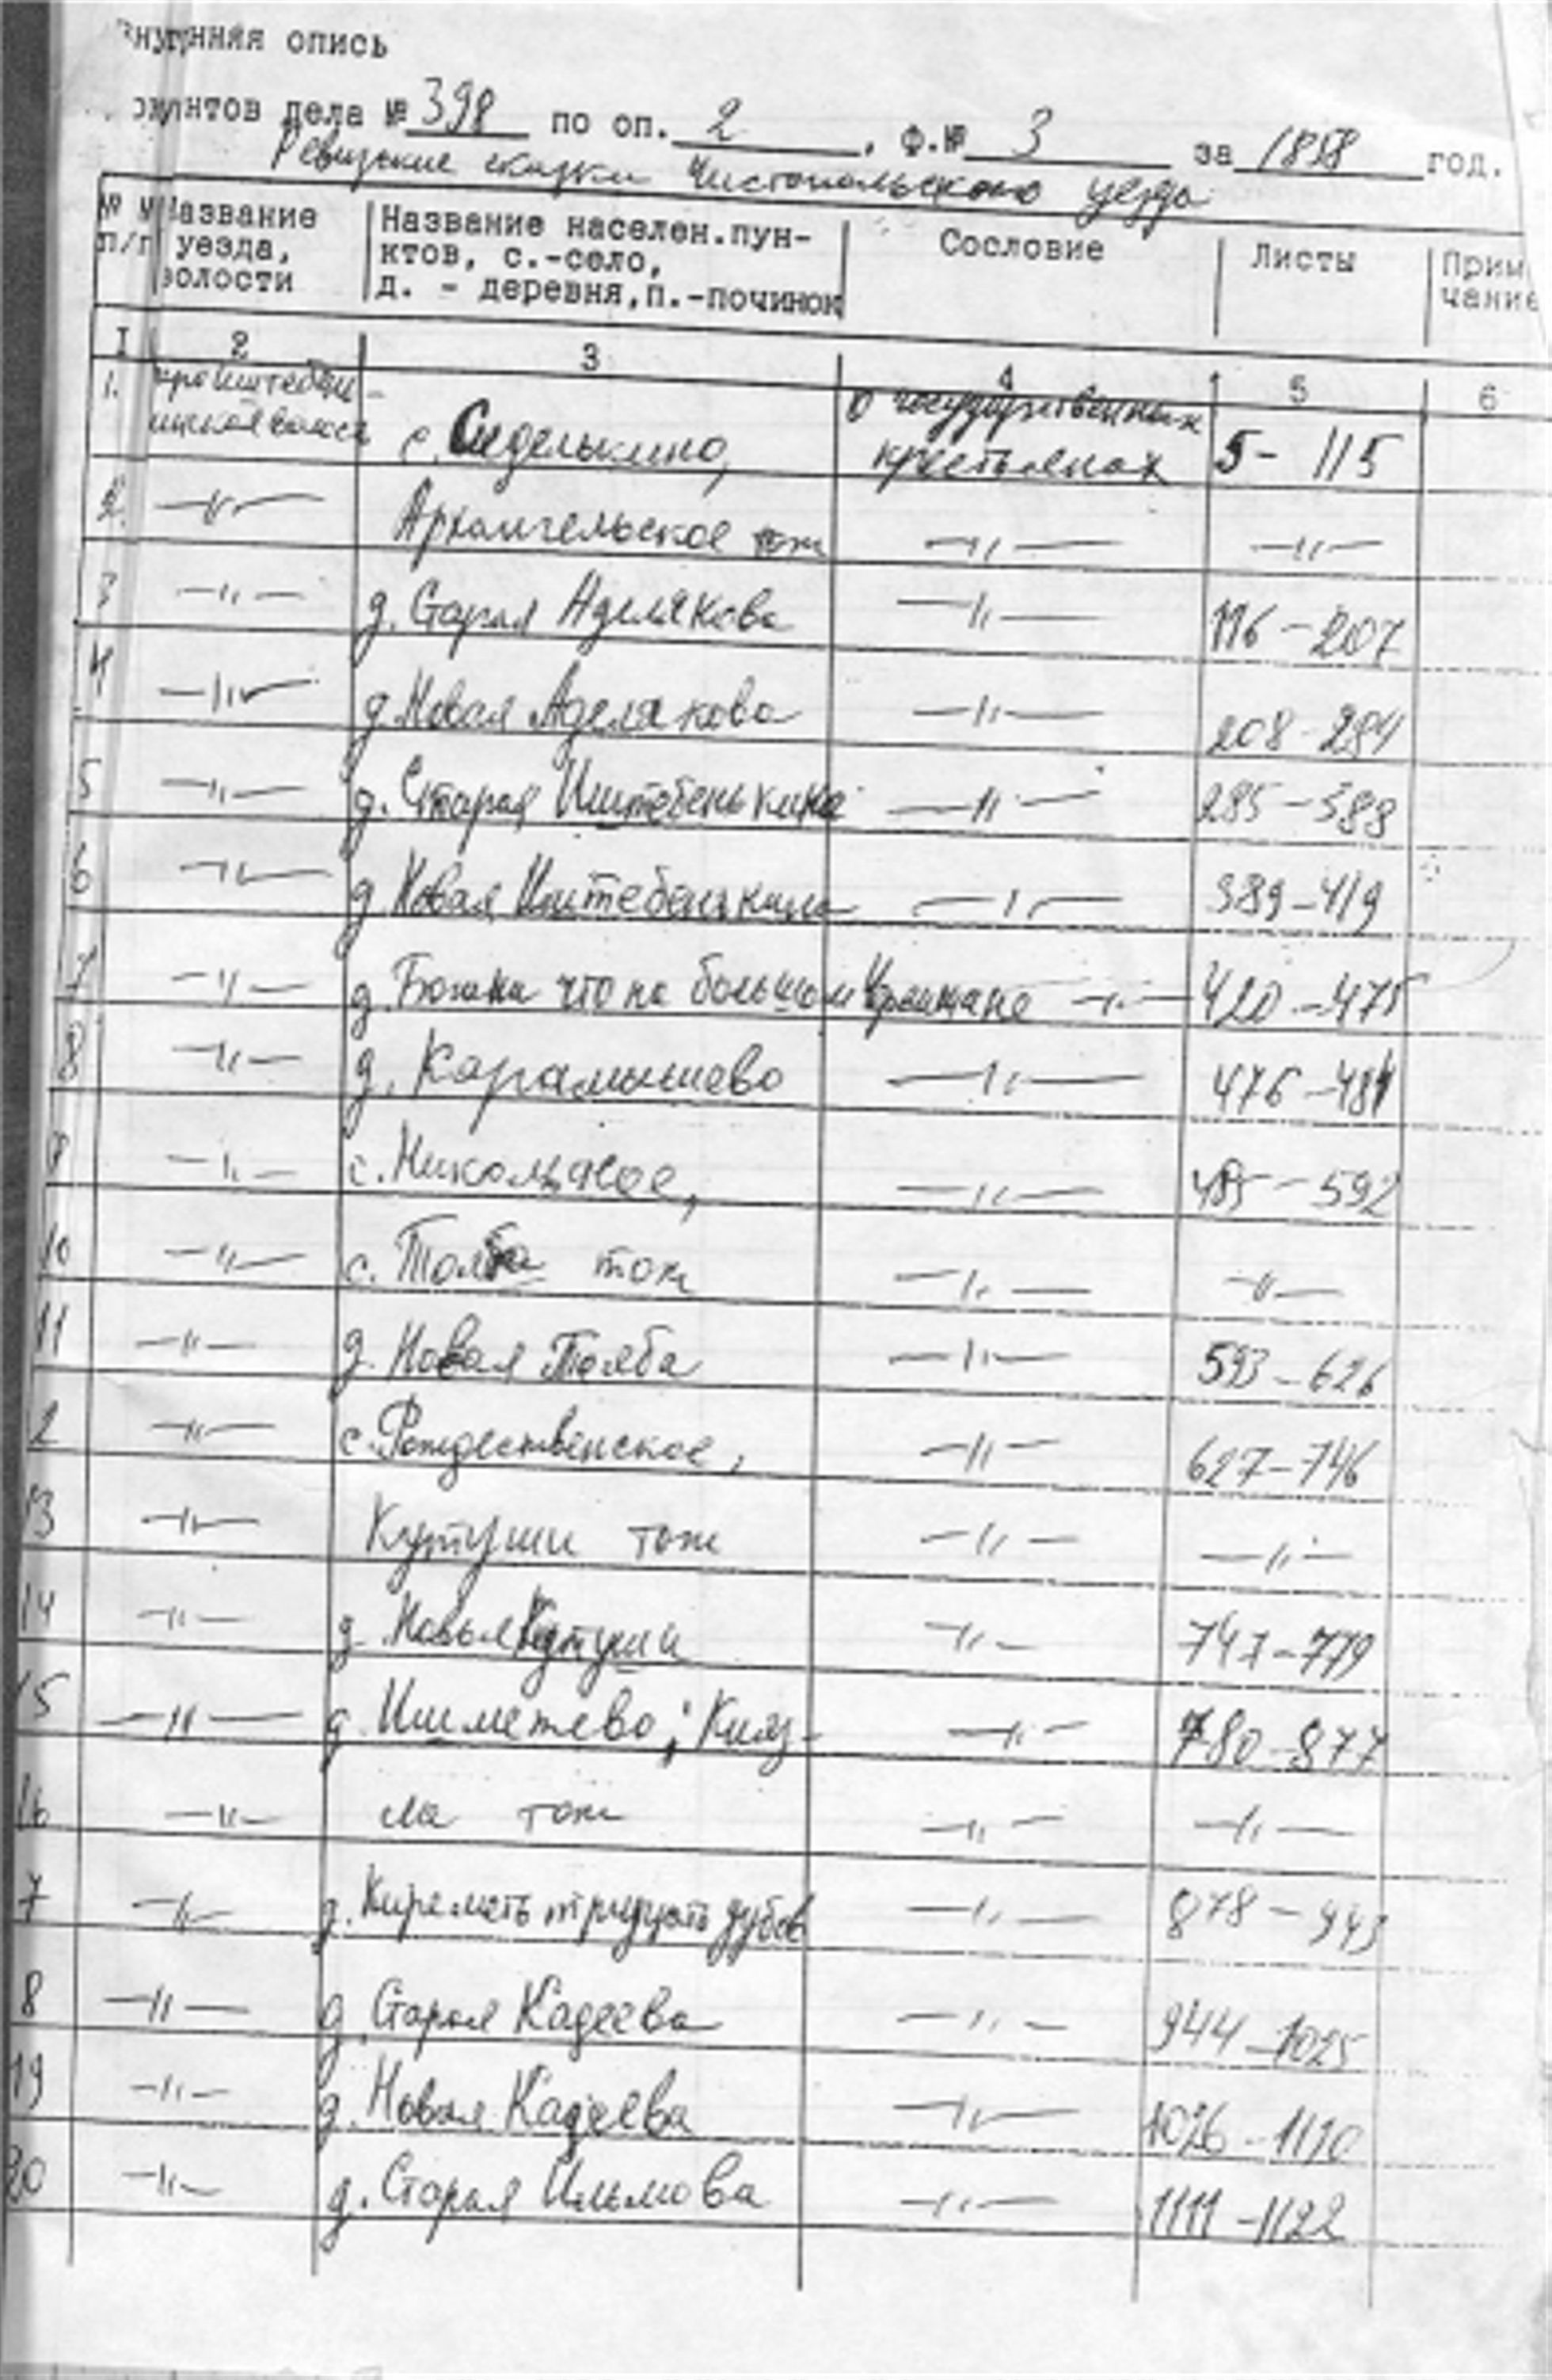 Внутренняя опись
документов дела № 398 по оп. 2, ф.№ 3 за 1858 год.
Ревизские сказки Чистопольского уезда
№ № п/п Название уезда, волости Название населен.пунктов, с.-село, д. - деревня, п.-починок Сословие Листы Примечание
I 2 3 4 5 6
1. с. Сиделькино, о государственных крестьянах 5- 115
2. —〃— Архангельское тож —〃— —〃—
3 —〃— д. Старая Аделякова —〃— 116-207
4 —〃— д. Новая Аделякова —〃— 208-284
5 —〃— д. Старая Иштебенькина —〃— 285-388
6 —〃— д. Новая Иштебенькина —〃— 389-419
7 —〃— д. что на большом —〃— 420-475
8 —〃— д. Карамышево —〃— 476-484
9 —〃— с. Никольское, —〃— 485-592
10 —〃— с. Толба тож —〃— —〃—
11 —〃— д. Новая Толба —〃— 593-626
12 —〃— с. Рождественское, —〃— 627-746
13 —〃— Кутуши тож —〃— —〃—
14 —〃— д. Новыя Кутуши —〃— 747-779
15 —〃— д. Ишметево; Кияз- —〃— 780-877
16 —〃— ла тож —〃— —〃—
17 —〃— д. Киреметь тридцать дубов —〃— 878-943
18 —〃— д. Старая Кадеева —〃— 944-1025
19 —〃— д. Новая Кадеева —〃— 1026-1110
20 —〃— д. Старая Ильмова —〃— 1111-1122